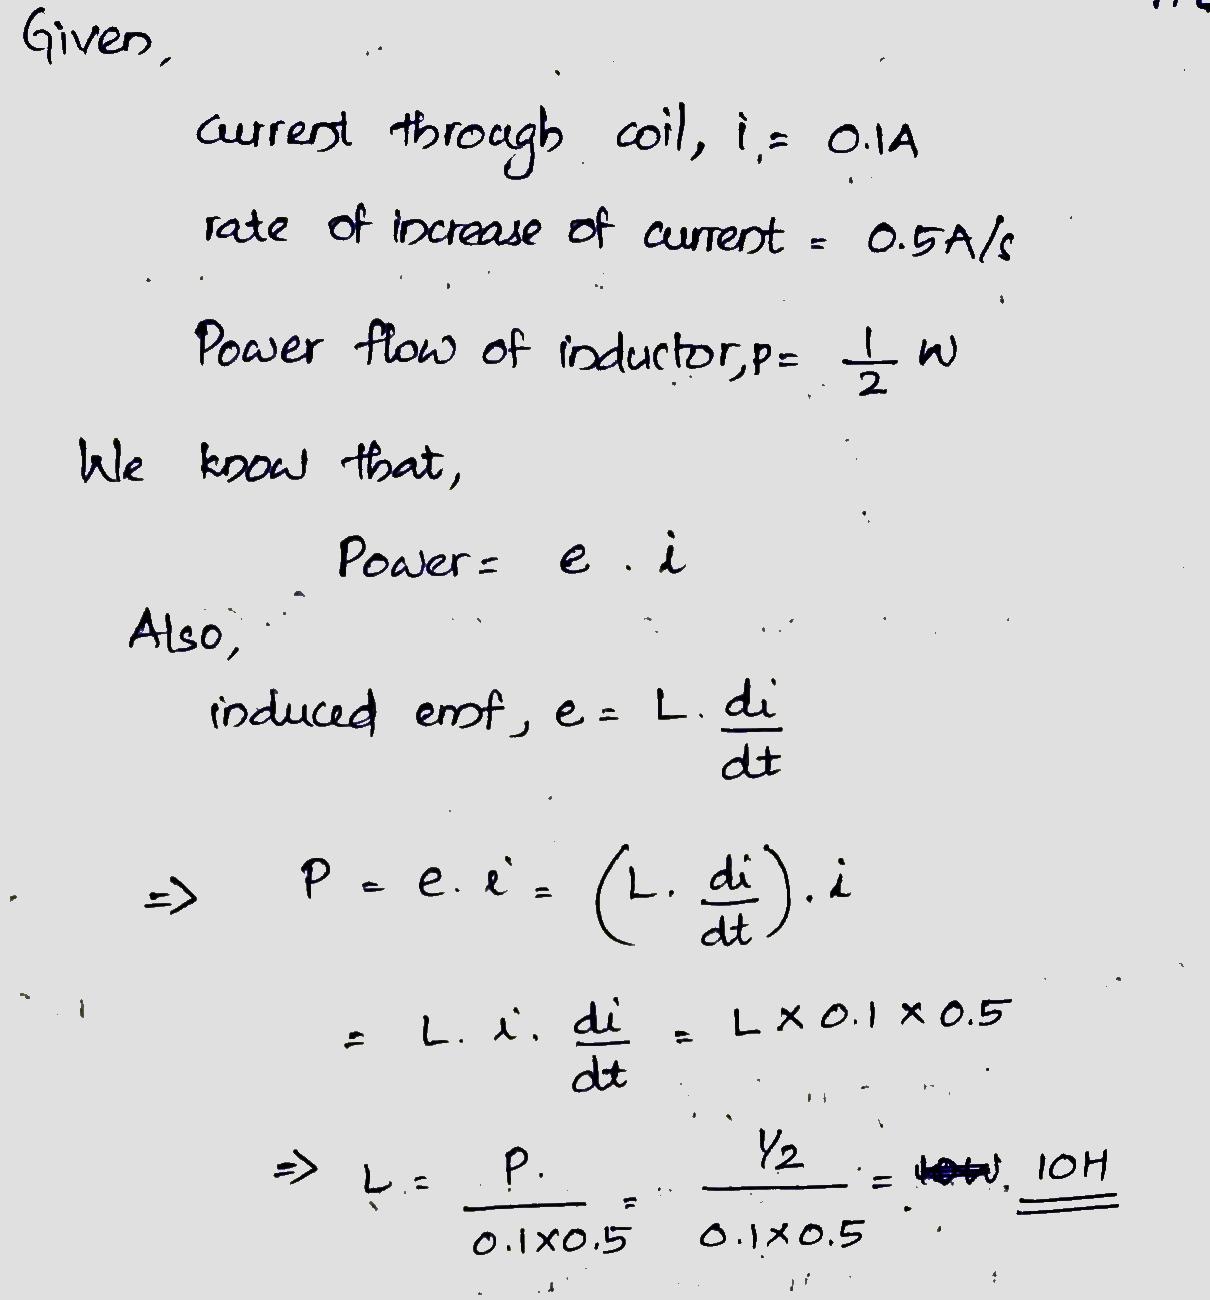 Given,
current through coil, i, = 0.1A
rate of increase of current = 0.5A/s
Power flow of inductor, P = 1/2 W
We know that,
Power = e . i
Also,
induced emf, e = L. di/dt
=> P = e. i = (L. di/dt). i
= L. i. di/dt = L X 0.1 X 0.5
=> L = P. / 0.1X0.5 = 1/2 / 0.1X0.5 = 10H